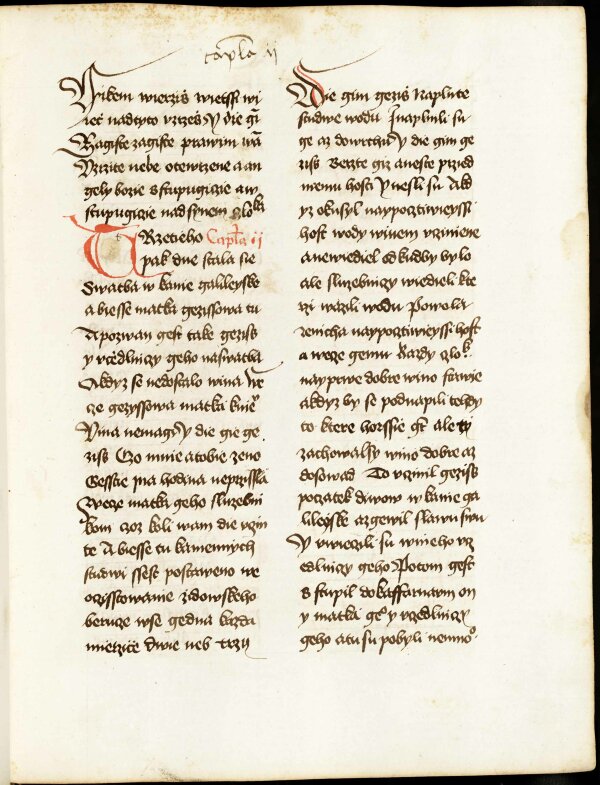 capła ij
ffikem wierziss wietssi wi
iec nadtyto vzrzess Y die gī
Zagiste zagiste prawim wā
Vzrzite nebe otewrzene a an
gely bozie sstupugicie aw
stupugicie nad synem czloka
TRzetieho Capła ij
pak dne stala sie
Swatba w kanie galileyske
a biesse matka gezissowa tu
A pozwan gest take geziss
y vczedlniczy geho na swatba
A kdyz se nedostalo wina We
cze gezyssowa matka kniem
Vina nemagi Y die gie ge
ziss Czo mnie a tobie zeno
Gesstie ma hodina neprzissla
Wecze matka geho sluzebni
kom czoz koli wam die vczin
te A biesse tu kamennych
studwi ssest postaweno we
oczisstowanie zidowskeho
beruce wse gedna kazda
mierzicze dwie neb trzy
Die gim geziss Naplnte
studwe wodu I naplnili su
ge az do wrchu Y die gim ge
ziss Berzte giz a neste przed
menu hosti Y nesli su A kd
yz okusyl naypocztiweyssi
host wody winem vcziniene
a newiediel odkudby bylo
ale sluzebniczy wiedieli kte
rzi wazili wodu Powola
zenicha naypocztiweyssi host
a wecze gemu Kazdy czlok
nayprwe dobre wino stawie
a kdyz by se podnapili tehdy
to ktere horssie gt ale ty
zachowal sy wino dobre az
do sowad To vczinil geziss
poczatek diwow w kanie ga
lileyske a zgewil slawu swu
Y vwierzili su w nieho vcz
edlniczy geho Potom gest
sstupil do kaffarnaum on
y matka geo y vczedlniczy
geho a tu su pobyli nemno